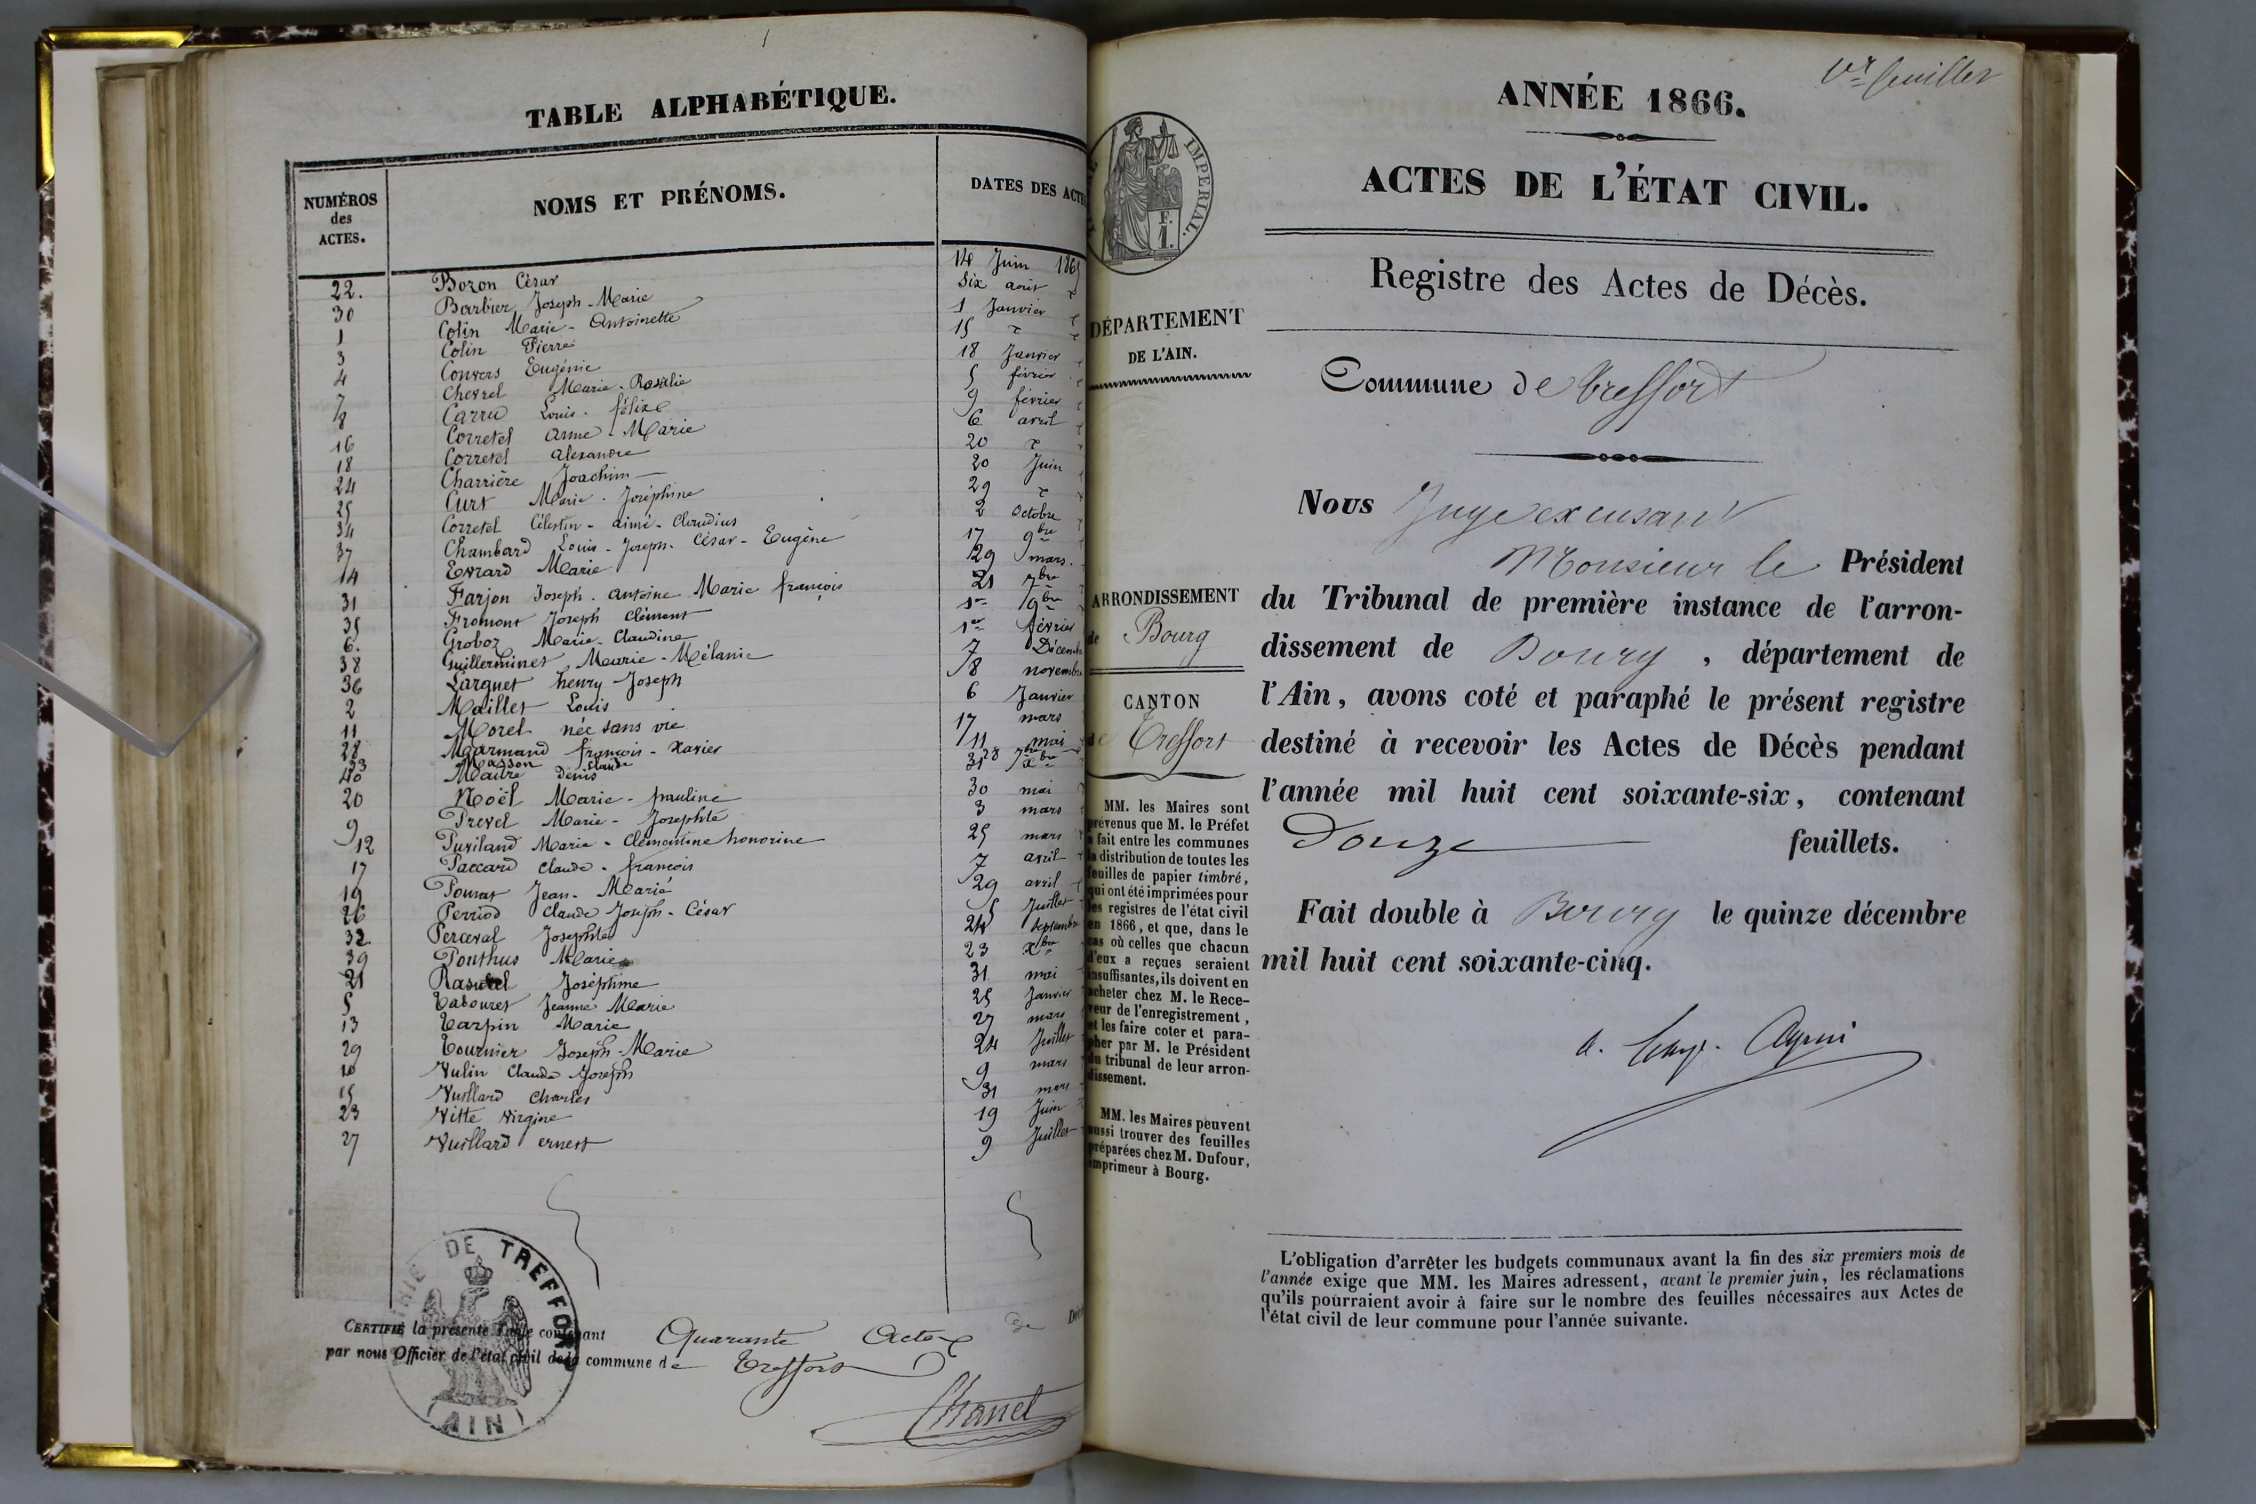 TABLE ALPHABÉTIQUE.
NUMÉROS
des
ACTES.
NOMS ET PRÉNOMS.
DATES DES ACTES
22. Bozon César 14 Juin 1865
30 Barbier Joseph-Marie Six aout
1 Colin Marie-Antoinette 1 Janvier
3 Colin Pierre 15
4 Convers Eugénie 18 Janvier
7 Chevrel Marie-Rosalie 5 février
8 Carru Louis-félix 9 février
16 Corretel anne-Marie 6 avril
18 Corretel alexandre 20
24 Charrière Joachim 20 Juin
25 Curt Marie-Joséphine 29
34 Corretel Célestin-aimé-Claudius 2 Octobre
37 Chambard Louis-Joseph-César-Eugène 17 9bre
14 Evrard Marie 29 mars
31 Farjon Joseph-antoine Marie françois 21 7bre
35 Fromont Joseph Clément 1er 9bre
6. Groboz Marie-Claudine 1er février
38 Guillerminet Marie-Mélanie 7 Décembre
36 Larguet henry-Joseph 8 novembre
2 Maillet Louis 6 Janvier
11 Morel née sans vie 17 mars
28 Marmand françois-Xavier 11 mai
33 Masson Claude 28 7bre
40 Maitre Denis 31 xbre
20 Noël Marie-pauline 30 mai
9 Prevel Marie-Josephte 3 mars
12 Puviland Marie-Clémentine honorine 25 mars
17 Paccard Claude-françois 7 avril
19 Pourat Jean-Marie 29 avril
26 Perriod Claude Joseph-César 5 Juillet
32. Perceval Josephte 24 Septembre
39 Ponthus Marie 23 xbre
21 Rasurel Joséphine 31 mai
5 Tabouret Jeanne Marie 25 Janvier
13 Tarpin Marie 27 mars
29 Tournier Joseph-Marie 24 Juillet
10 Vulin Claude Joseph 9 mars
15 Vuillard Charles 31 mars
23 Vitte Virgine 19 Juin
27 Vuillard ernest 9 Juillet
MAIRIE DE TREFFORT
(AIN)
CERTIFIÉ la présente Table contenant Quarante Actes
par nous Officier de l'état civil de la commune de Treffort
Chanel
1er feuillet
ANNÉE 1866.
ACTES DE L'ÉTAT CIVIL.
Registre des Actes de Décès.
IMPERIAL.
F.
1.
DÉPARTEMENT
DE L'AIN.
Commune de Treffort
ARRONDISSEMENT
de Bourg
CANTON
de Treffort
MM. les Maires sont
prévenus que M. le Préfet
a fait entre les communes
la distribution de toutes les
feuilles de papier timbré,
qui ont été imprimées pour
les registres de l'état civil
en 1866, et que, dans le
cas où celles que chacun
d'eux a reçues seraient
insuffisantes, ils doivent en
acheter chez M. le Rece-
veur de l'enregistrement,
et les faire coter et para-
pher par M. le Président
du tribunal de leur arron-
dissement.
MM. les Maires peuvent
aussi trouver des feuilles
préparées chez M. Dufour,
imprimeur à Bourg.
Nous Juge excusant
Monsieur le Président
du Tribunal de première instance de l'arron-
dissement de Bourg, département de
l'Ain, avons coté et paraphé le présent registre
destiné à recevoir les Actes de Décès pendant
l'année mil huit cent soixante-six, contenant
Douze feuillets.
Fait double à Bourg le quinze décembre
mil huit cent soixante-cinq.
L'obligation d'arrêter les budgets communaux avant la fin des six premiers mois de
l'année exige que MM. les Maires adressent, avant le premier juin, les réclamations
qu'ils pourraient avoir à faire sur le nombre des feuilles nécessaires aux Actes de
l'état civil de leur commune pour l'année suivante.